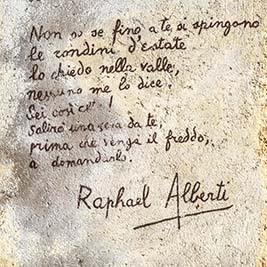 Non so se fino a te si spingono
le rondini d'estate
lo chiedo nella valle,
nessuno me lo dice.
Sei così !
Salirò una sera da te,
prima che venga il freddo,
a domandarlo.
Raphael Alberti